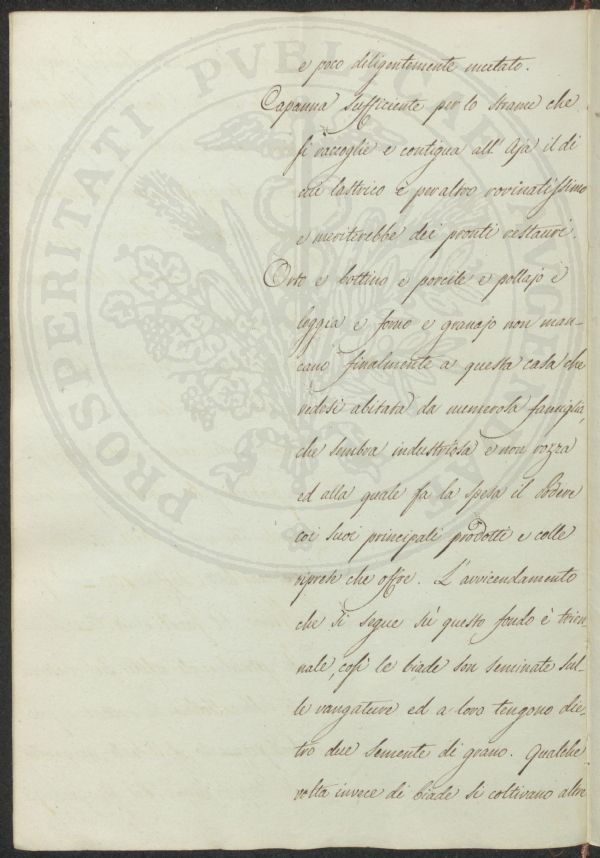 e poco diligentemente mutato.
Capanna sufficiente per lo strame che
si raccoglie e contigua all' Aja il di
cui lastrico è per altro rovinatissimo
e meriterebbe dei pronti restauri.
Orto e bottino e porcile e pollajo e
loggia e forno e granajo non man-
cano finalmente a questa casa che
vedesi abitata da numerosa famiglia,
che sembra industriosa e non rozza
ed alla quale fa la spesa il Podere
coi suoi principali prodotti e colle
riprese che offre. L'avvicendamento
che si segue sù questo fondo è trien-
nale, così le biade son seminate sul-
le vangature ed a loro tengono die-
tro due semente di grano. Qualche
volta invece di biade si coltivano altre
PROSPERITATI PUBLICAE AUGENDAE